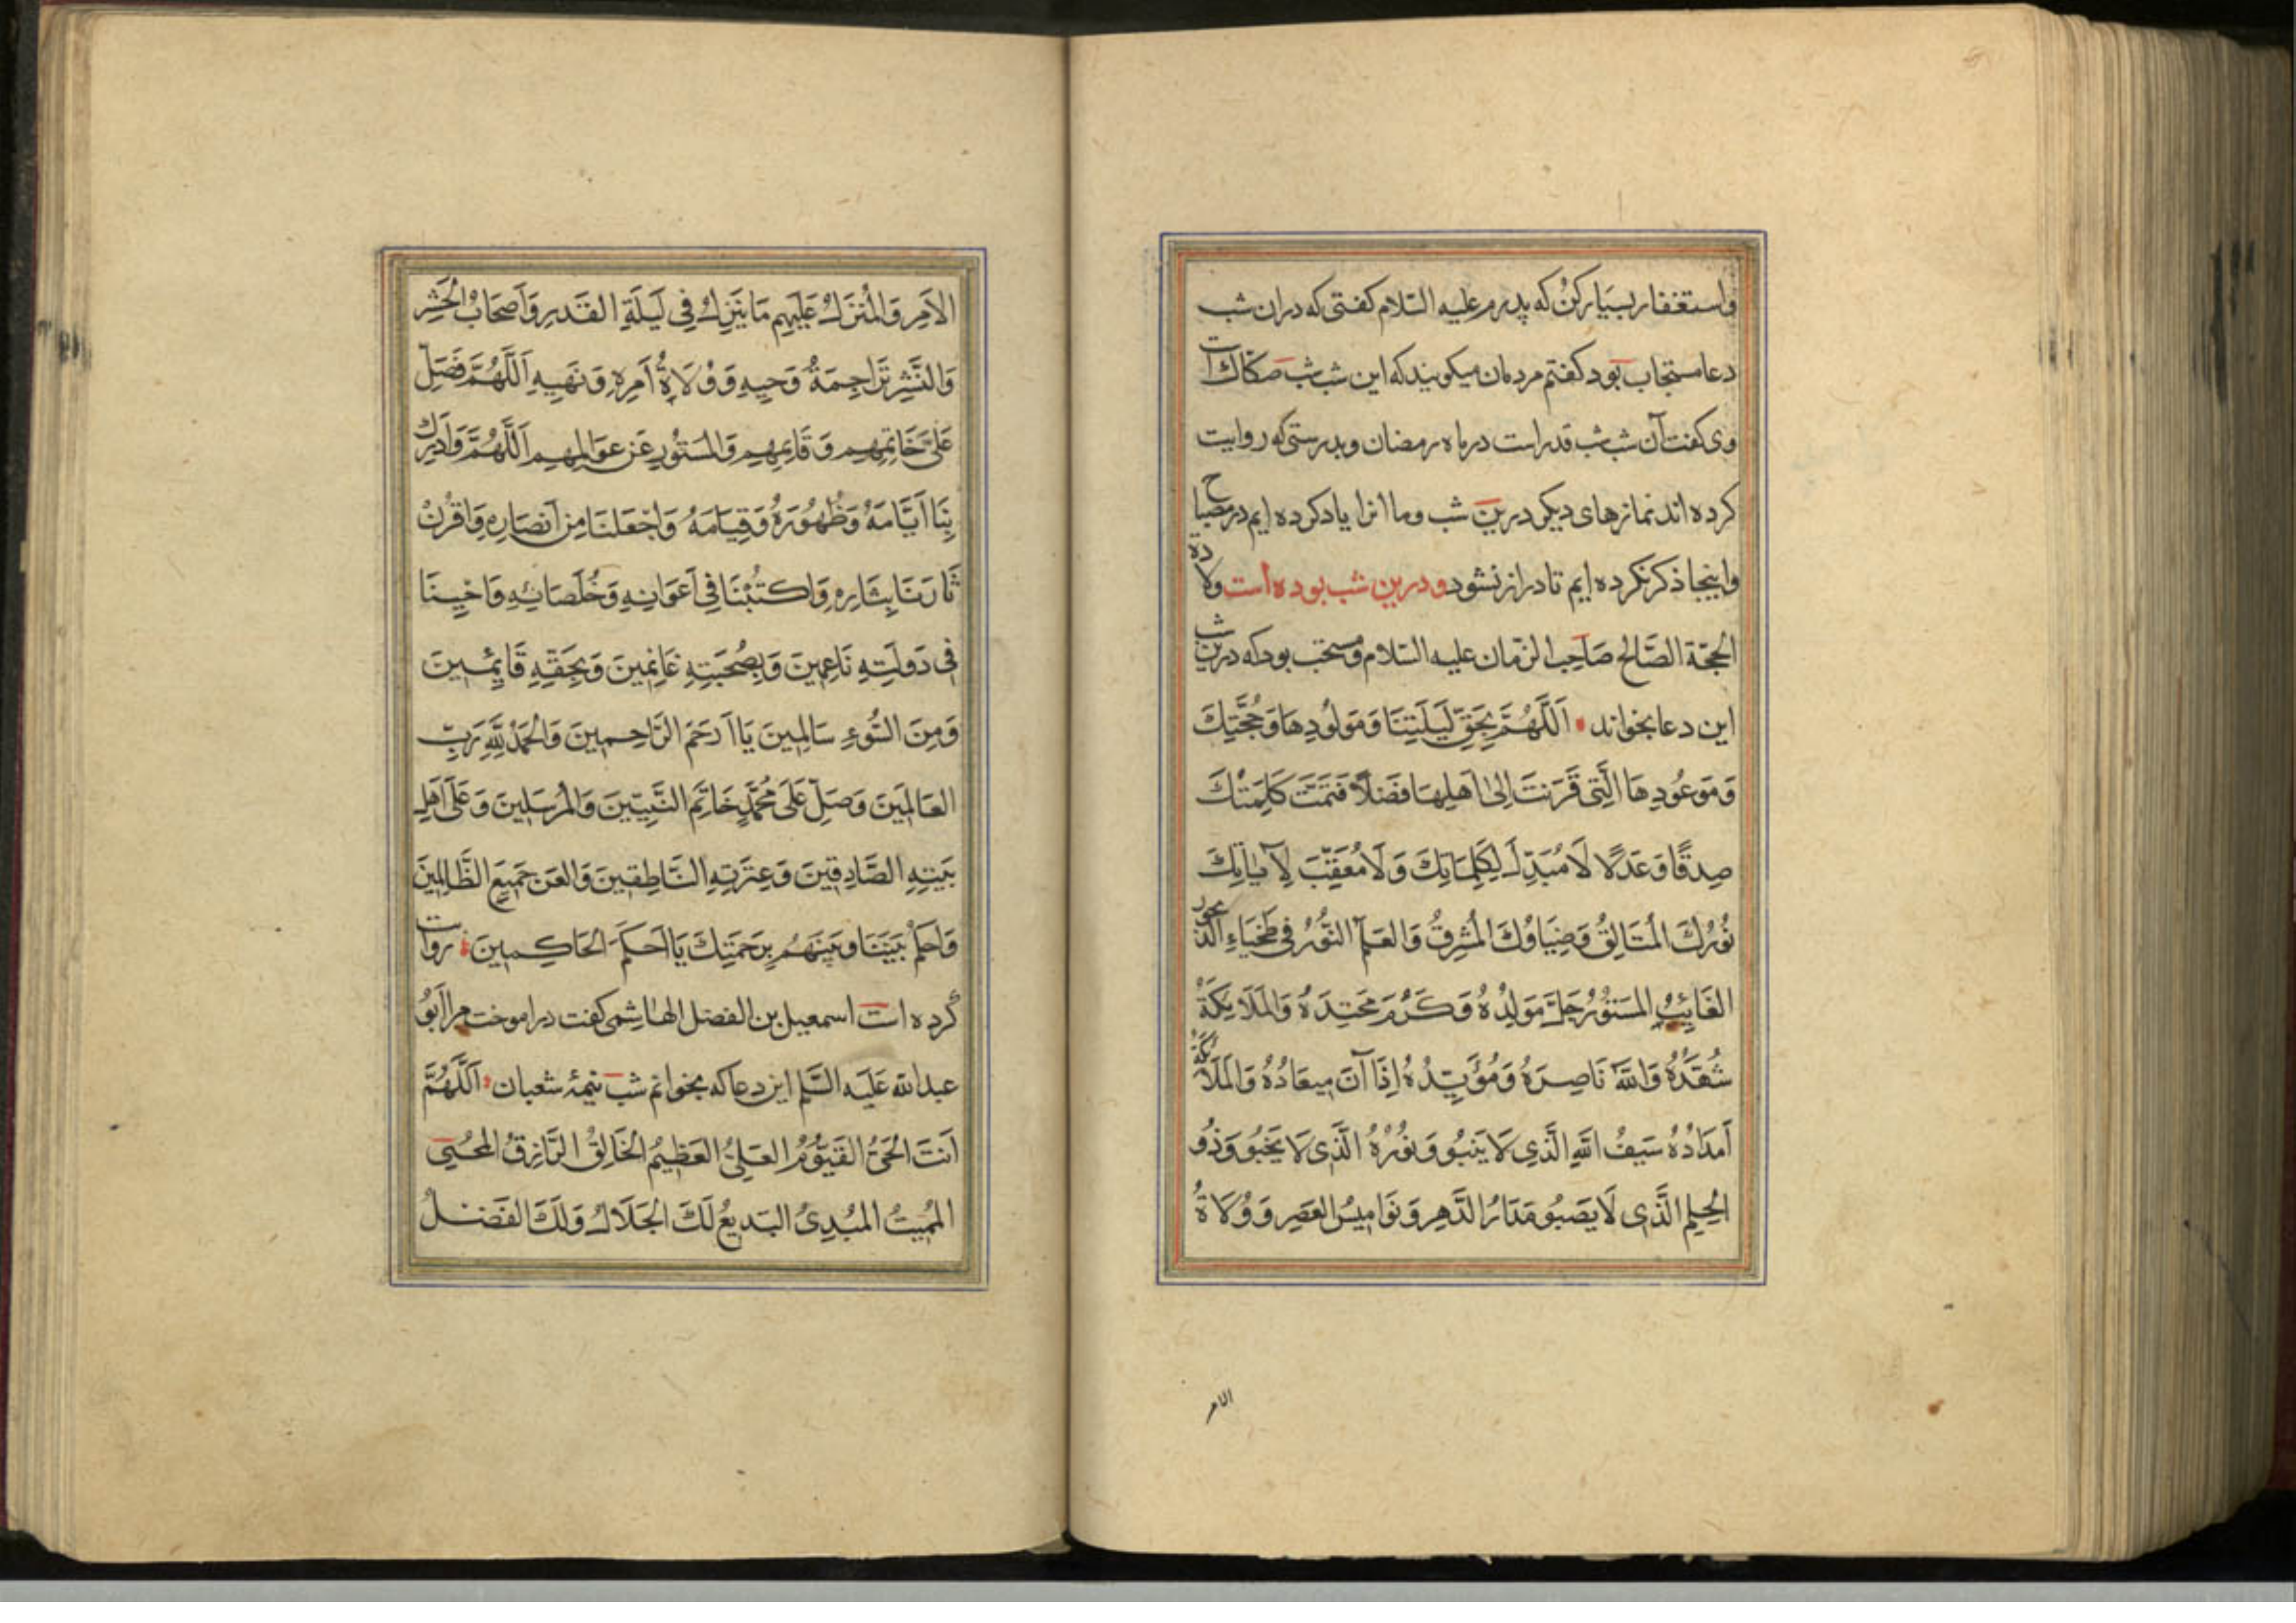 واستغفار بسیار کن که پدرم علیه السّلام کفتی که در ان شب
دعا مستجاب بود کفتم مردمان میکویند که این شب شب صکاک است
وی کفت آن شب شب قدر است در ماه رمضان و بدرستی که روایت
کرده اند نمازهای دیکر درین شب وما انرا یاد کرده ایم در مصباح
واینجا ذکر نکرده ایم تا دراز نشود ودرین شب بوده است ولادة
الحجّة الصَّالح صَاحِب الزمان علیه السّلام ومستحب بود که درین شب
این دعا بخواند اَللّٰهُمَّ بِحَقِّ لَيْلَتِنَا وَمَوْلُودِهَا وَحُجَّتِكَ
وَمَوْعُودِهَا الَّتِي قَرَنْتَ اِلىٰ اَهْلِهَا فَضْلًا فَتَمَّتْ كَلِمَتُكَ
صِدْقًا وَعَدْلًا لَا مُبَدِّلَ لِكَلِمَاتِكَ وَلَا مُعَقِّبَ لِآيَاتِكَ
نُورُكَ الْمُتَالِقُ وَضِيَاؤُكَ الْمُشْرِقُ وَالْعَلَمُ النُّورُ فِي طَخْيَاءِ الدَّيْجُورِ
الْغَائِبُ الْمَسْتُورُ جَلَّ مَوْلِدُهُ وَكَرُمَ مَحْتِدَهُ وَالْمَلَائِكَةُ
شُهَّدُهُ وَاللهُ نَاصِرُهُ وَمُؤَيِّدُهُ اِذَا آنَ مِيعَادُهُ وَالْمَلَائِكَةُ
اَمْدَادُهُ سَيْفُ اللهِ الَّذِي لَا يَنْبُو وَنُورُهُ الَّذِي لَا يَخْبُو وَذُو
الْحِلْمِ الَّذِي لَا يَصْبُو مَدَارُ الدَّهْرِ وَنَوَامِيسُ الْعَصْرِ وَوُلَاةُ
الامر
الْاَمْرِ وَالْمُنَزَّلُ عَلَيْهِمْ مَا يَنْزِلُ فِي لَيْلَةِ الْقَدْرِ وَاَصْحَابُ الْحَشْرِ
وَالنَّشْرِ تَرَاجِمَةُ وَحْيِهِ وَوُلَاةُ اَمْرِهِ وَنَهْيِهِ اَللّٰهُمَّ فَصَلِّ
عَلىٰ خَاتِمِهِمْ وَقَائِمِهِمْ وَالْمَسْتُورِ عَنْ عَوَالِمِهِمْ اَللّٰهُمَّ وَاَدْرِكْ
بِنَا اَيَّامَهُ وَظُهُورَهُ وَقِيَامَهُ وَاجْعَلْنَا مِنْ اَنْصَارِهِ وَاقْرُنْ
ثَارَنَا بِثَارِهِ وَاكْتُبْنَا فِي اَعْوَانِهِ وَخُلَصَائِهِ وَاَحْيِنَا
فِي دَوْلَتِهِ نَاعِمِينَ وَبِصُحْبَتِهِ غَانِمِينَ وَبِحَقِّهِ قَائِمِينَ
وَمِنَ السُّوءِ سَالِمِينَ يَا اَرْحَمَ الرَّاحِمِينَ وَالْحَمْدُ لِلّٰهِ رَبِّ
الْعَالَمِينَ وَصَلِّ عَلىٰ مُحَمَّدٍ خَاتَمِ النَّبِيِّينَ وَالْمُرْسَلِينَ وَعَلىٰ اَهْلِ
بَيْتِهِ الصَّادِقِينَ وَعِتْرَتِهِ النَّاطِقِينَ وَالْعَنْ جَمِيعَ الظَّالِمِينَ
وَاحْكُمْ بَيْنَنَا وَبَيْنَهُمْ بِرَحْمَتِكَ يَا اَحْكَمَ الْحَاكِمِينَ روات
کرده است اسمعیل بن الفضل الهاشمی کفت دراموخت مرا اَبُو
عبدالله عَلَيْهِ السَّلم این دعا که بخوانم شب نیمهٔ شعبان اَللّٰهُمَّ
اَنْتَ الْحَيُّ الْقَيُّومُ الْعَلِيُّ الْعَظِيمُ الْخَالِقُ الرَّازِقُ الْمُحْيِي
الْمُمِيتُ الْمُبْدِئُ الْبَدِيعُ لَكَ الْجَلَالُ وَلَكَ الْفَضْلُ